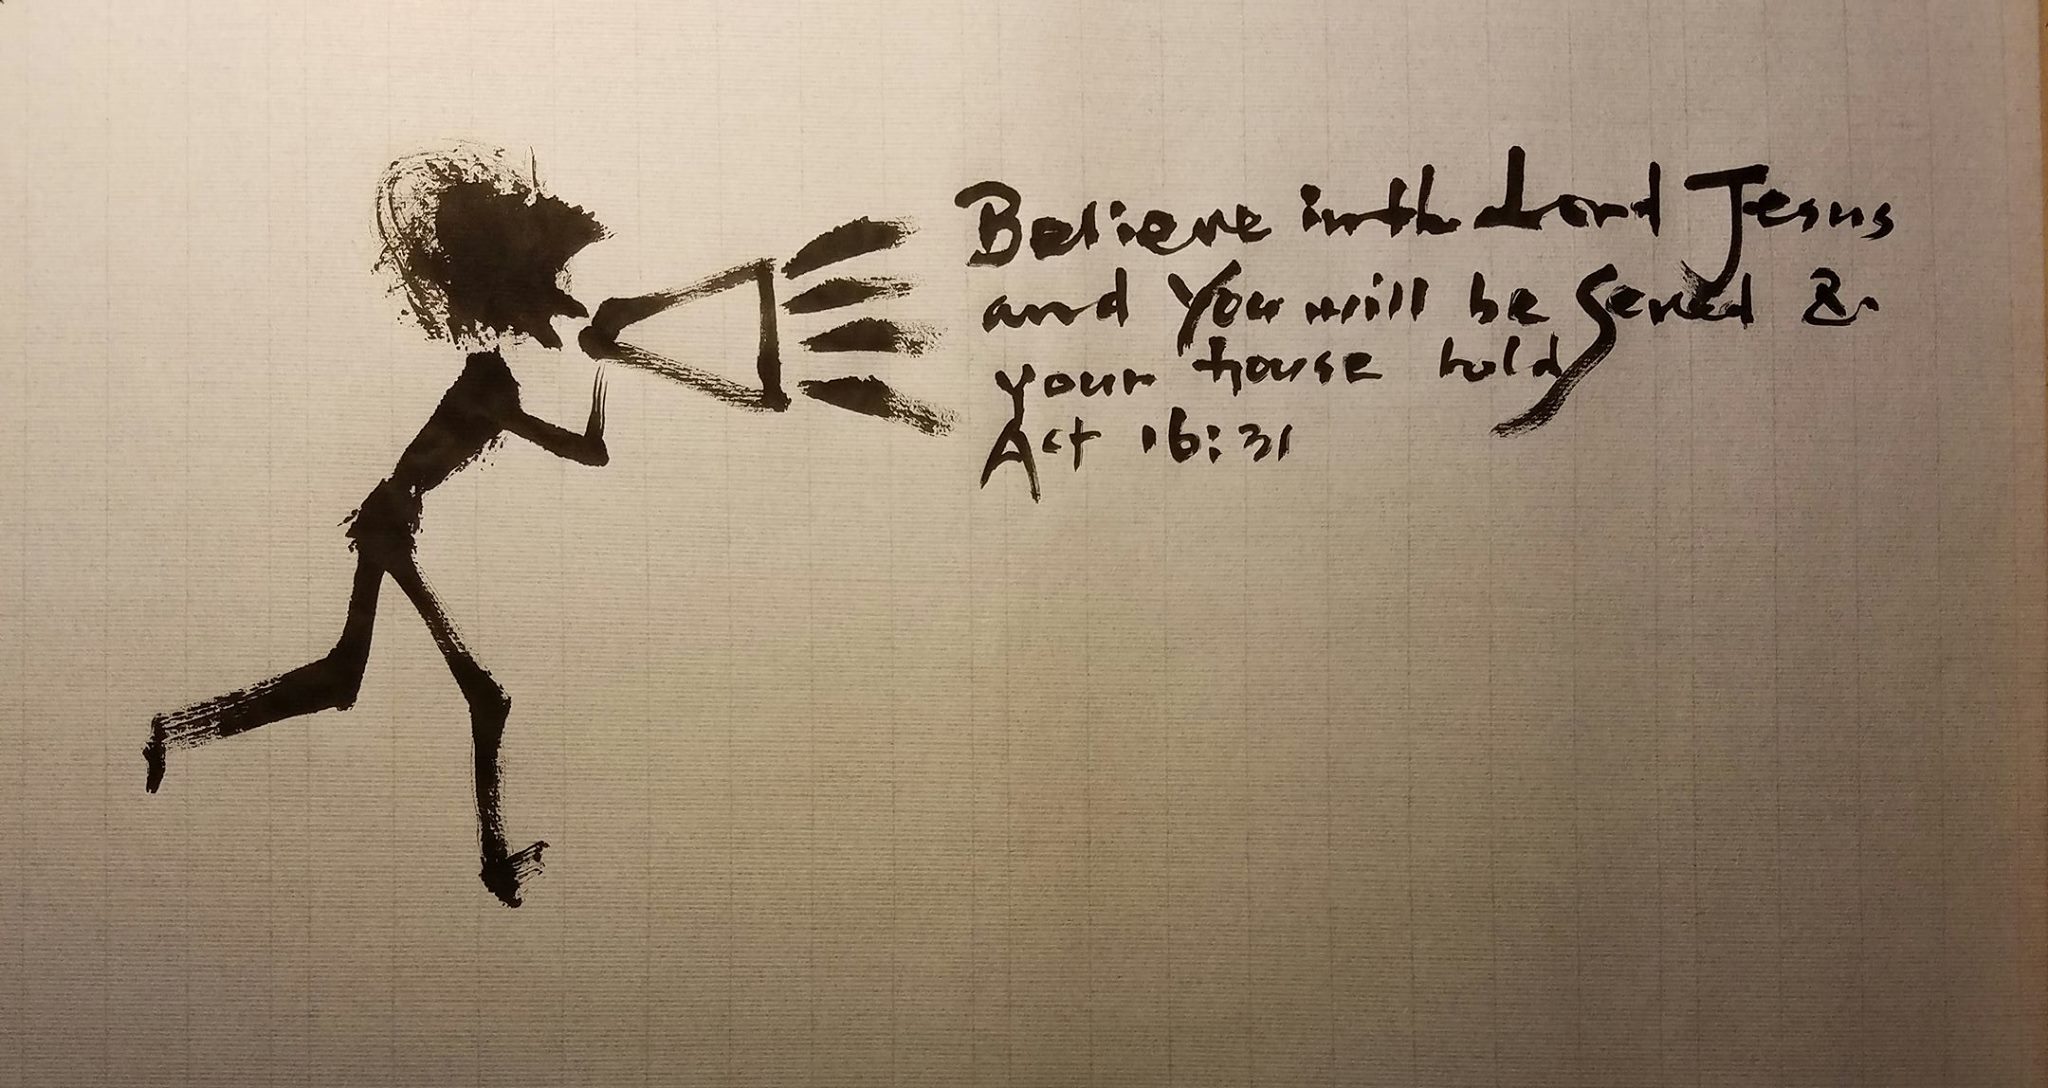 Believe in the Lord Jesus
and You will be Seved &
your house hold
Act 16:31